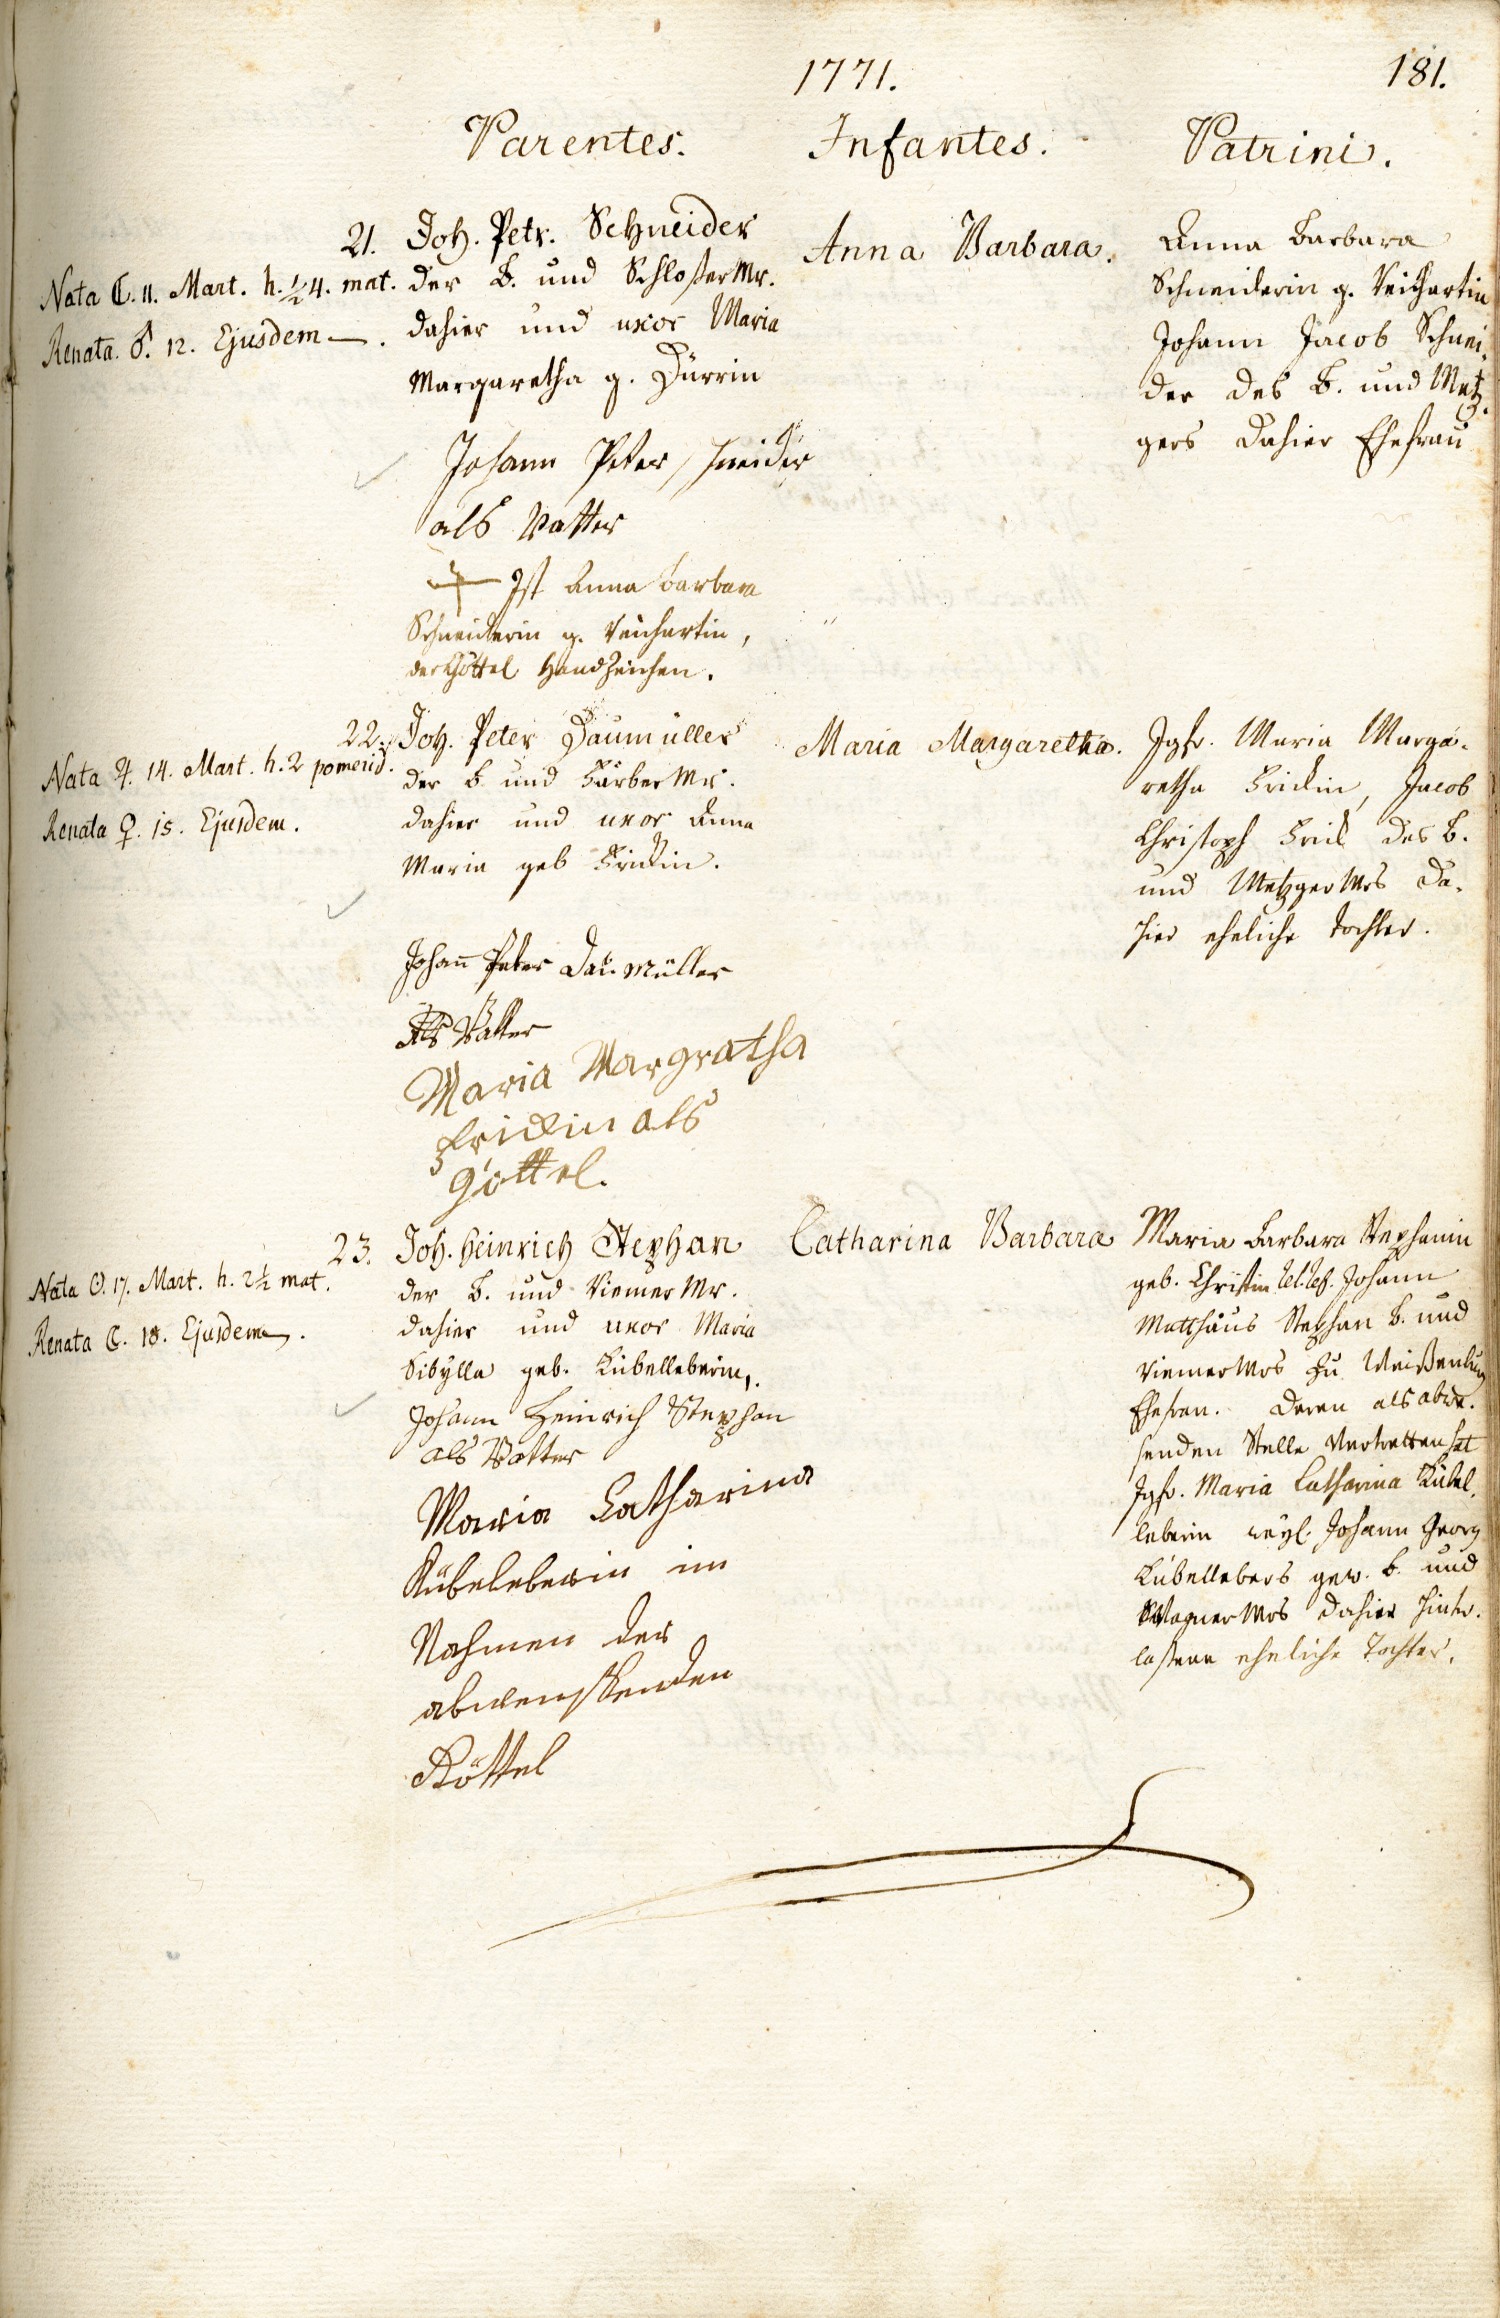 1771.
181.
Parentes.
Infantes.
Patrini.
21.
Nata ☾. 11. Mart. h. ½4. mat.
Renata. ♂. 12. Ejusdem
Joh. Petr. Schneider
der B. und Schloßer Mr.
dahier und uxor Maria
Margaretha g. Dürrin
Johann Peter Schneider
als Vatter
Ist Anna Barbara
Schneiderin g. Veichartin,
der Göttel Handzeichen.
Anna Barbara.
Anna Barbara
Schneiderin g. Veichartin
Johann Jacob Schnei-
der des B. und Metz-
gers dahier Ehefrau
22.
Nata ♃. 14. Mart. h. 2 pomerid.
Renata ♀. 15. Ejusdem.
Joh. Peter Daumüller
der B. und Färber Mr.
dahier und uxor Anna
Maria geb Frickin.
Johann Peter Dau müller
Als Vatter
Maria Margratha
Frickin als
Göttel.
Maria Margaretha.
Jgfr. Maria Marga-
retha Frickin, Jacob
Christoph Frick des B.
und Metzger Mrs da-
hier eheliche Tochter.
23.
Nata ☉. 17. Mart. h. 2½ mat.
Renata ☾. 18. Ejusdem.
Joh. Heinrich Stephan
der B. und Riemer Mr.
dahier und uxor Maria
Sibylla geb. Kübelleberin,.
Johann Heinrich Stephan
als Vatter
Maria Catharina
Kübeleberin im
Nahmen der
abwenssenden
Göttel
Catharina Barbara
Maria Barbara Stephanin
geb. Christin Johann
Matthäus Stephan B. und
Riemer Mrs zu Weißenburg
Ehefrau. Deren als abwe-
senden Stelle vertretten hat
Jgfr. Maria Catharina Kübel-
leberin weyl. Johann Georg
Kübellebers gew. B. und
Wagner Mrs dahier hinter-
laßene eheliche Tochter.